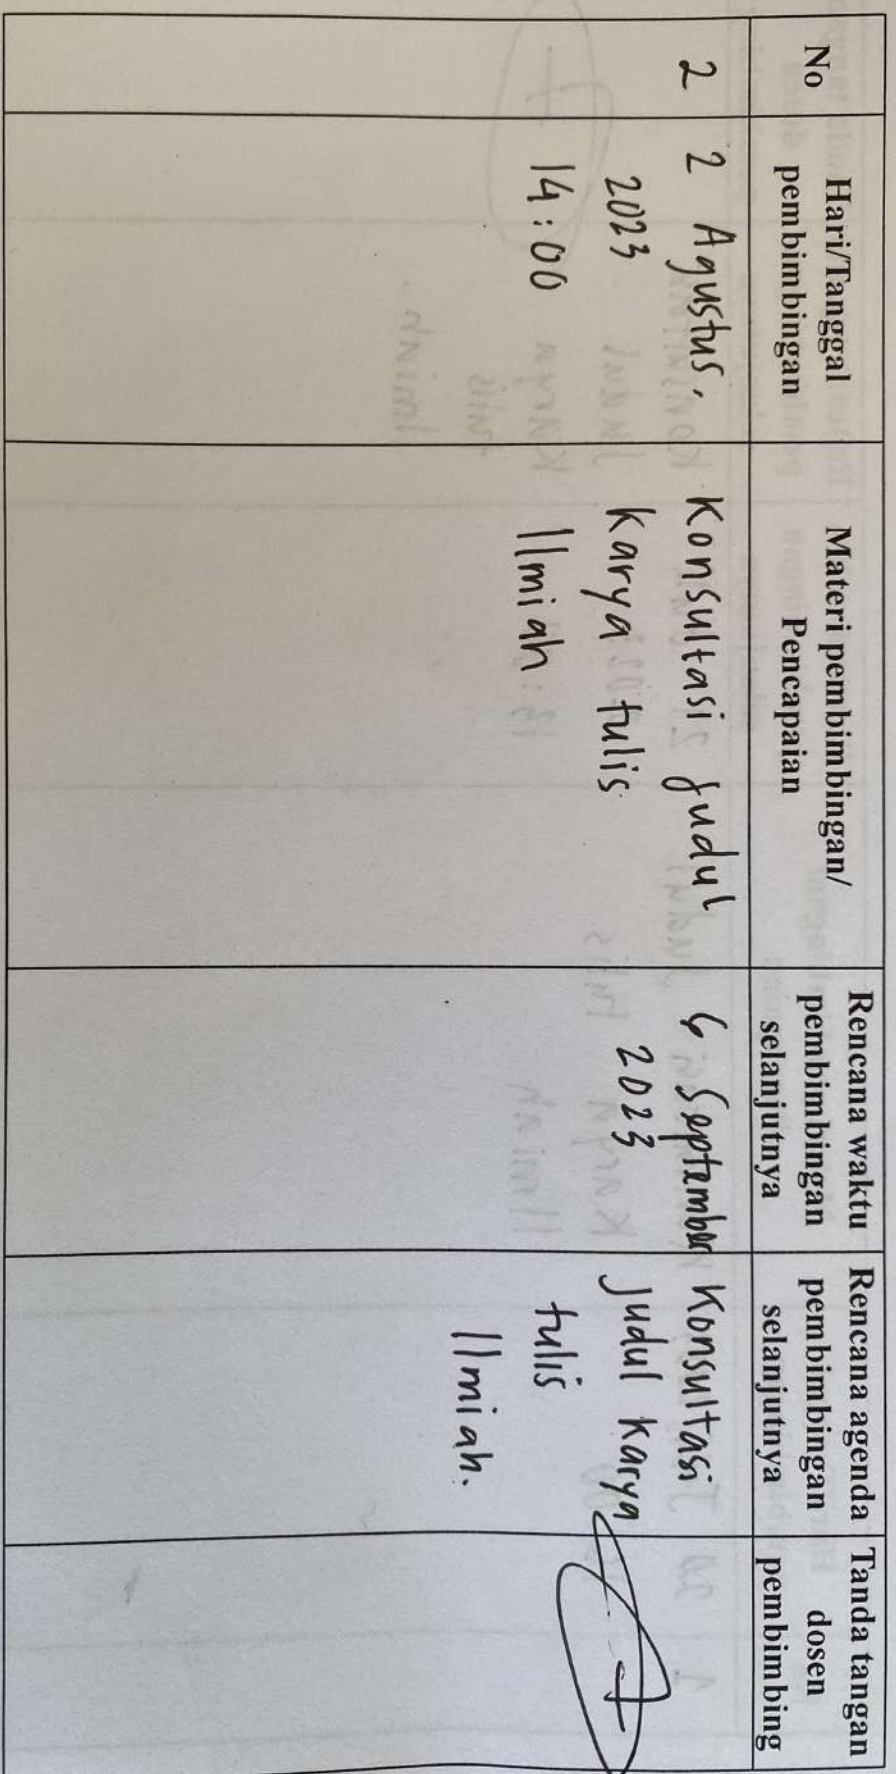 No
Hari/Tanggal
pembimbingan
Materi pembimbingan/
Pencapaian
Rencana waktu
pembimbingan
selanjutnya
Rencana agenda
pembimbingan
selanjutnya
Tanda tangan
dosen
pembimbing
2
2 Agustus,
2023
14:00
Konsultasi judul
Karya tulis
Ilmiah
6 September
2023
Konsultasi
Judul Karya
tulis
Ilmiah.